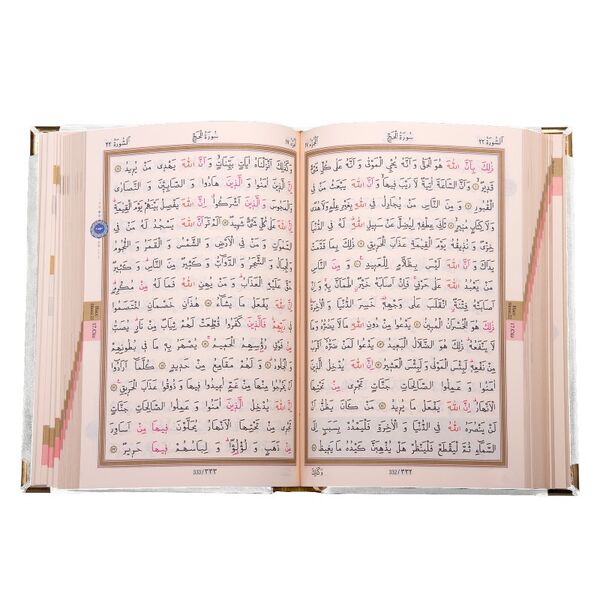 اَلسُّورَةُ ٢٢
سُورَةُ الْحَجِّ
اَلْجُزْءُ ١٧
ذٰلِكَ بِاَنَّ اللّٰهَ هُوَ الْحَقُّ وَاَنَّهُ يُحْيِي الْمَوْتٰى وَاَنَّهُ عَلٰى كُلِّ شَيْءٍ
قَدِيرٌ ۞ وَاَنَّ السَّاعَةَ اٰتِيَةٌ لَا رَيْبَ فِيهَا وَاَنَّ اللّٰهَ يَبْعَثُ مَنْ فِي
الْقُبُورِ ۞ وَمِنَ النَّاسِ مَنْ يُجَادِلُ فِي اللّٰهِ بِغَيْرِ عِلْمٍ وَلَا هُدًى
وَلَا كِتَابٍ مُنِيرٍ ۞ ثَانِيَ عِطْفِهِ لِيُضِلَّ عَنْ سَبِيلِ اللّٰهِ لَهُ فِي الدُّنْيَا
خِزْيٌ وَنُذِيقُهُ يَوْمَ الْقِيٰمَةِ عَذَابَ الْحَرِيقِ ۞ ذٰلِكَ بِمَا قَدَّمَتْ
يَدَاكَ وَاَنَّ اللّٰهَ لَيْسَ بِظَلَّامٍ لِلْعَبِيدِ ۞ وَمِنَ النَّاسِ
مَنْ يَعْبُدُ اللّٰهَ عَلٰى حَرْفٍ فَاِنْ اَصَابَهُ خَيْرٌ اطْمَاَنَّ بِهِ وَاِنْ
اَصَابَتْهُ فِتْنَةٌ انْقَلَبَ عَلٰى وَجْهِهِ خَسِرَ الدُّنْيَا وَالْاٰخِرَةَ
ذٰلِكَ هُوَ الْخُسْرَانُ الْمُبِينُ ۞ يَدْعُوا مِنْ دُونِ اللّٰهِ مَا لَا يَضُرُّهُ وَمَا
لَا يَنْفَعُهُ ذٰلِكَ هُوَ الضَّلَالُ الْبَعِيدُ ۞ يَدْعُوا لَمَنْ ضَرُّهُ اَقْرَبُ
مِنْ نَفْعِهِ لَبِئْسَ الْمَوْلٰى وَلَبِئْسَ الْعَشِيرُ ۞ اِنَّ اللّٰهَ يُدْخِلُ
الَّذِينَ اٰمَنُوا وَ عَمِلُوا الصَّالِحَاتِ جَنَّاتٍ تَجْرِي مِنْ تَحْتِهَا
الْاَنْهَارُ اِنَّ اللّٰهَ يَفْعَلُ مَا يُرِيدُ ۞ مَنْ كَانَ يَظُنُّ اَنْ
لَنْ يَنْصُرَهُ اللّٰهُ فِي الدُّنْيَا وَالْاٰخِرَةِ فَلْيَمْدُدْ بِسَبَبٍ اِلَى
السَّمَاءِ ثُمَّ لْيَقْطَعْ فَلْيَنْظُرْ هَلْ يُذْهِبَنَّ كَيْدُهُ مَا يَغِيظُ
332/٣٣٢
وَكَذٰلِكَ
اَلسُّورَةُ ٢٢
سُورَةُ الْحَجِّ
وَكَذٰلِكَ اَنْزَلْنَاهُ اٰيَاتٍ بَيِّنَاتٍ وَ اَنَّ اللّٰهَ يَهْدِي مَنْ يُرِيدُ ۞
اِنَّ الَّذِينَ اٰمَنُوا وَ الَّذِينَ هَادُوا وَ الصَّابِـِٔينَ وَ النَّصَارٰى
وَ الْمَجُوسَ وَ الَّذِينَ اَشْرَكُوا اِنَّ اللّٰهَ يَفْصِلُ بَيْنَهُمْ يَوْمَ الْقِيٰمَةِ
اِنَّ اللّٰهَ عَلٰى كُلِّ شَيْءٍ شَهِيدٌ ۞ اَلَمْ تَرَ اَنَّ اللّٰهَ يَسْجُدُ لَهُ مَنْ فِي
السَّمٰوَاتِ وَ مَنْ فِي الْاَرْضِ وَ الشَّمْسُ وَ الْقَمَرُ وَ النُّجُومُ
وَ الْجِبَالُ وَ الشَّجَرُ وَ الدَّوَابُّ وَ كَثِيرٌ مِنَ النَّاسِ وَ كَثِيرٌ
حَقَّ عَلَيْهِ الْعَذَابُ وَ مَنْ يُهِنِ اللّٰهُ فَمَا لَهُ مِنْ مُكْرِمٍ
اِنَّ اللّٰهَ يَفْعَلُ مَا يَشَاءُ ۞ هٰذَانِ خَصْمَانِ اخْتَصَمُوا
فِي رَبِّهِمْ فَالَّذِينَ كَفَرُوا قُطِّعَتْ لَهُمْ ثِيَابٌ مِنْ نَارٍ يُصَبُّ
مِنْ فَوْقِ رُؤُسِهِمُ الْحَمِيمُ ۞ يُصْهَرُ بِهِ مَا فِي بُطُونِهِمْ
وَ الْجُلُودُ ۞ وَ لَهُمْ مَقَامِعُ مِنْ حَدِيدٍ ۞ كُلَّمَا اَرَادُوا
اَنْ يَخْرُجُوا مِنْهَا مِنْ غَمٍّ اُعِيدُوا فِيهَا وَ ذُوقُوا عَذَابَ الْحَرِيقِ ۞
اِنَّ اللّٰهَ يُدْخِلُ الَّذِينَ اٰمَنُوا وَ عَمِلُوا الصَّالِحَاتِ جَنَّاتٍ
تَجْرِي مِنْ تَحْتِهَا الْاَنْهَارُ يُحَلَّوْنَ فِيهَا مِنْ اَسَاوِرَ
مِنْ ذَهَبٍ وَ لُؤْلُؤًا وَ لِبَاسُهُمْ فِيهَا حَرِيرٌ ۞
333/٣٣٣
17.Cüz
17.Cüz